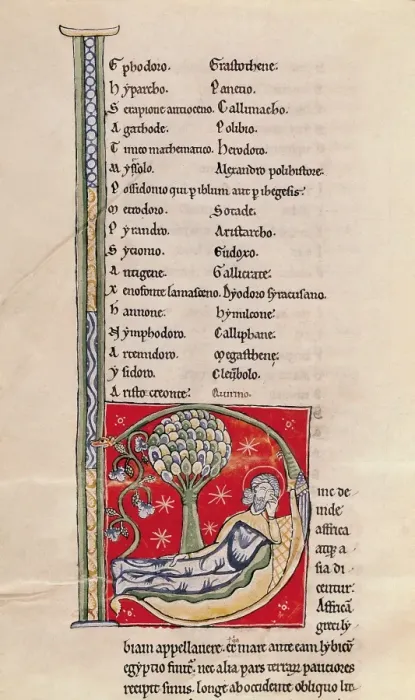 Ephodoro. Erastothene.
Hyparcho. Panetio.
Serapione antioceno. Callimacho.
Agathode. Polibio.
Timeo mathematico. Herodoto.
Alexandro polihistore.
Possidonio qui piblum aut pihegesis.
Metrodoro. Sotade.
Pyrandro. Aristarcho.
Sycionio. Eudoxo.
Antigene. Callicrate.
Xenofonte lamasceno. Dyodoro syracusano.
Hannone. hymilcone.
Nymphodoro. Calliphane.
Artemidoro. Megasthene.
Ysidoro. Cleubolo.
Aristo creonte.
inc de
inde
affrica
atq; a
sia di
centur.
Affricā
greci ly
biam appellavere. & mare ante eam lybicū
egyptio finit. nec alia pars terrarū pauciores
recipit sinus. longe ab occidente obliquo li